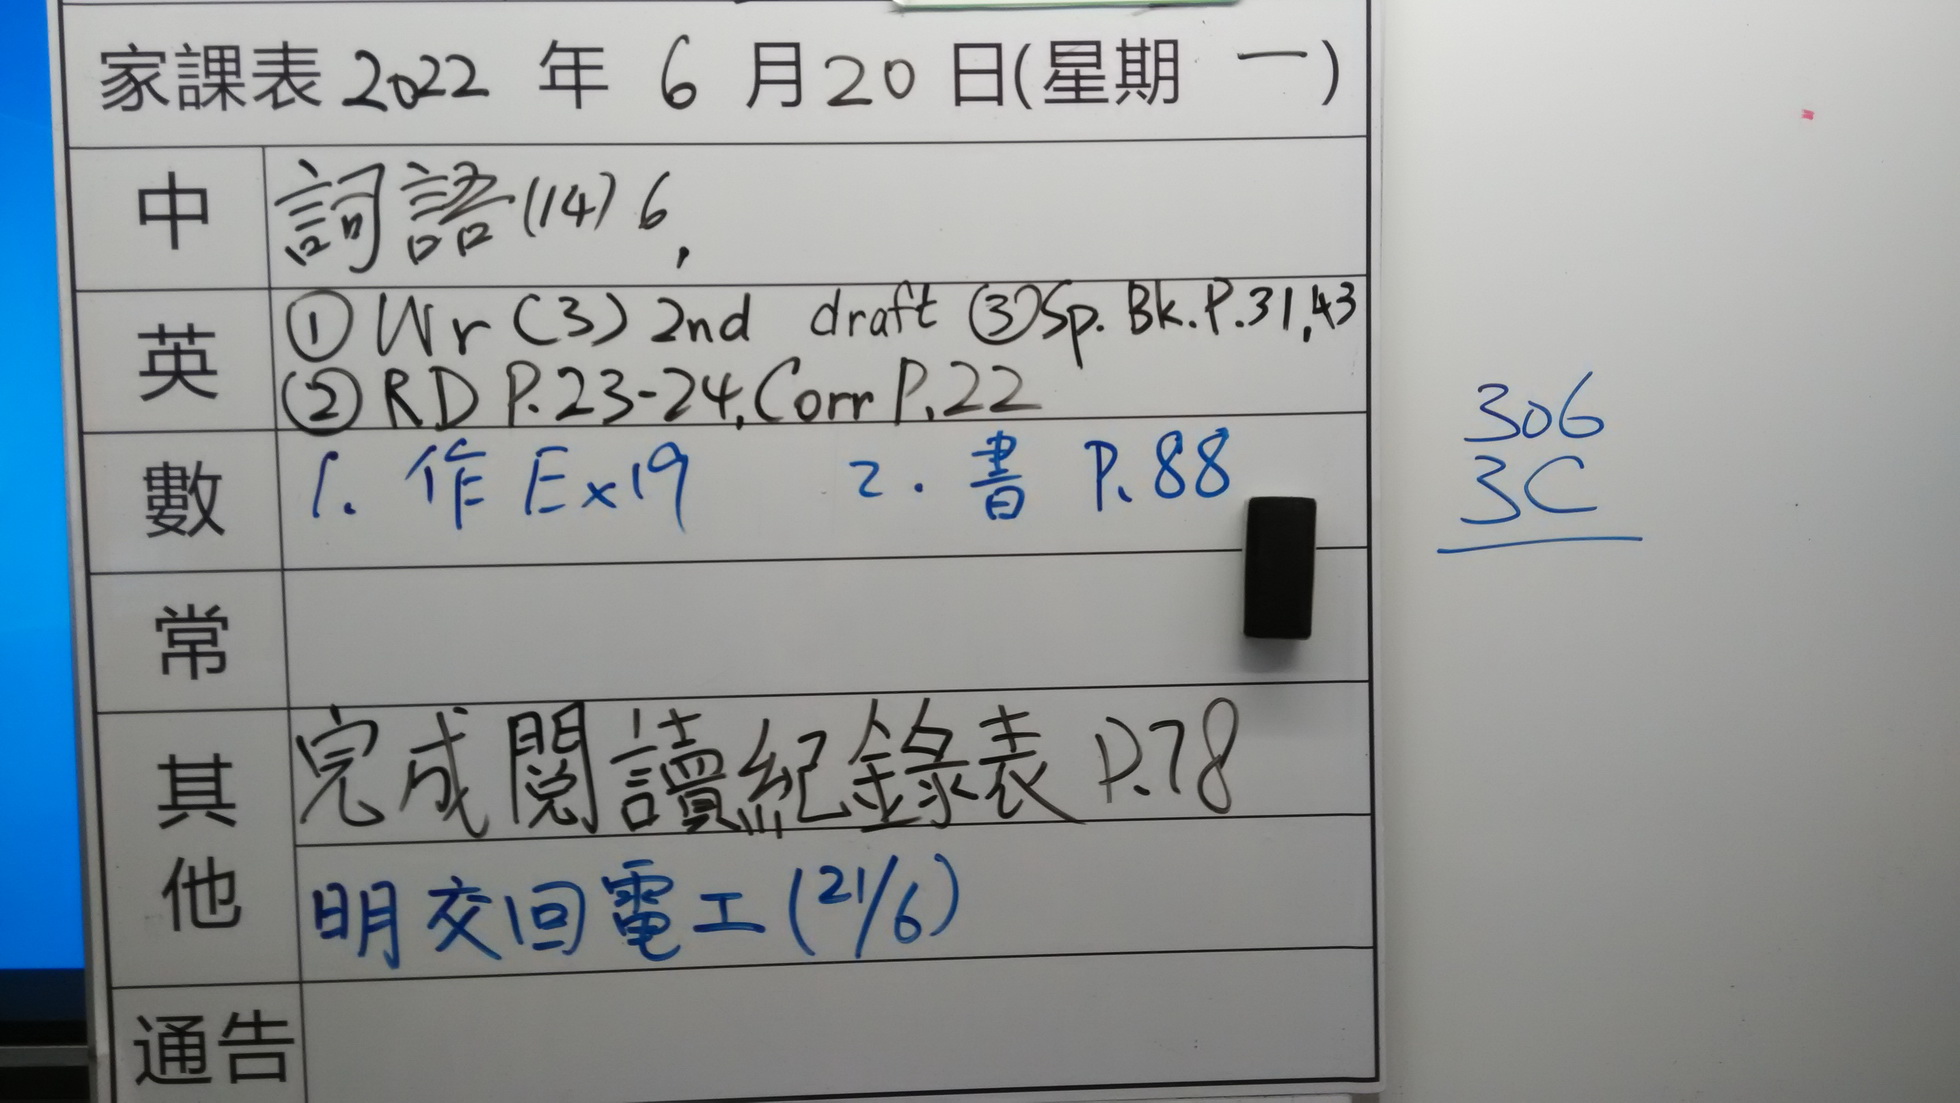 家課表 2022 年 6 月 20 日(星期 一)
中 詞語(14) 6,
英 ① Wr (3) 2nd draft ③ Sp. Bk. P.31,43
② RD P.23-24, Corr P.22
數 1. 作 Ex19 2. 書 P.88
常
其他 完成閱讀紀錄表 P.78
明交回電工(21/6)
通告
306
3C